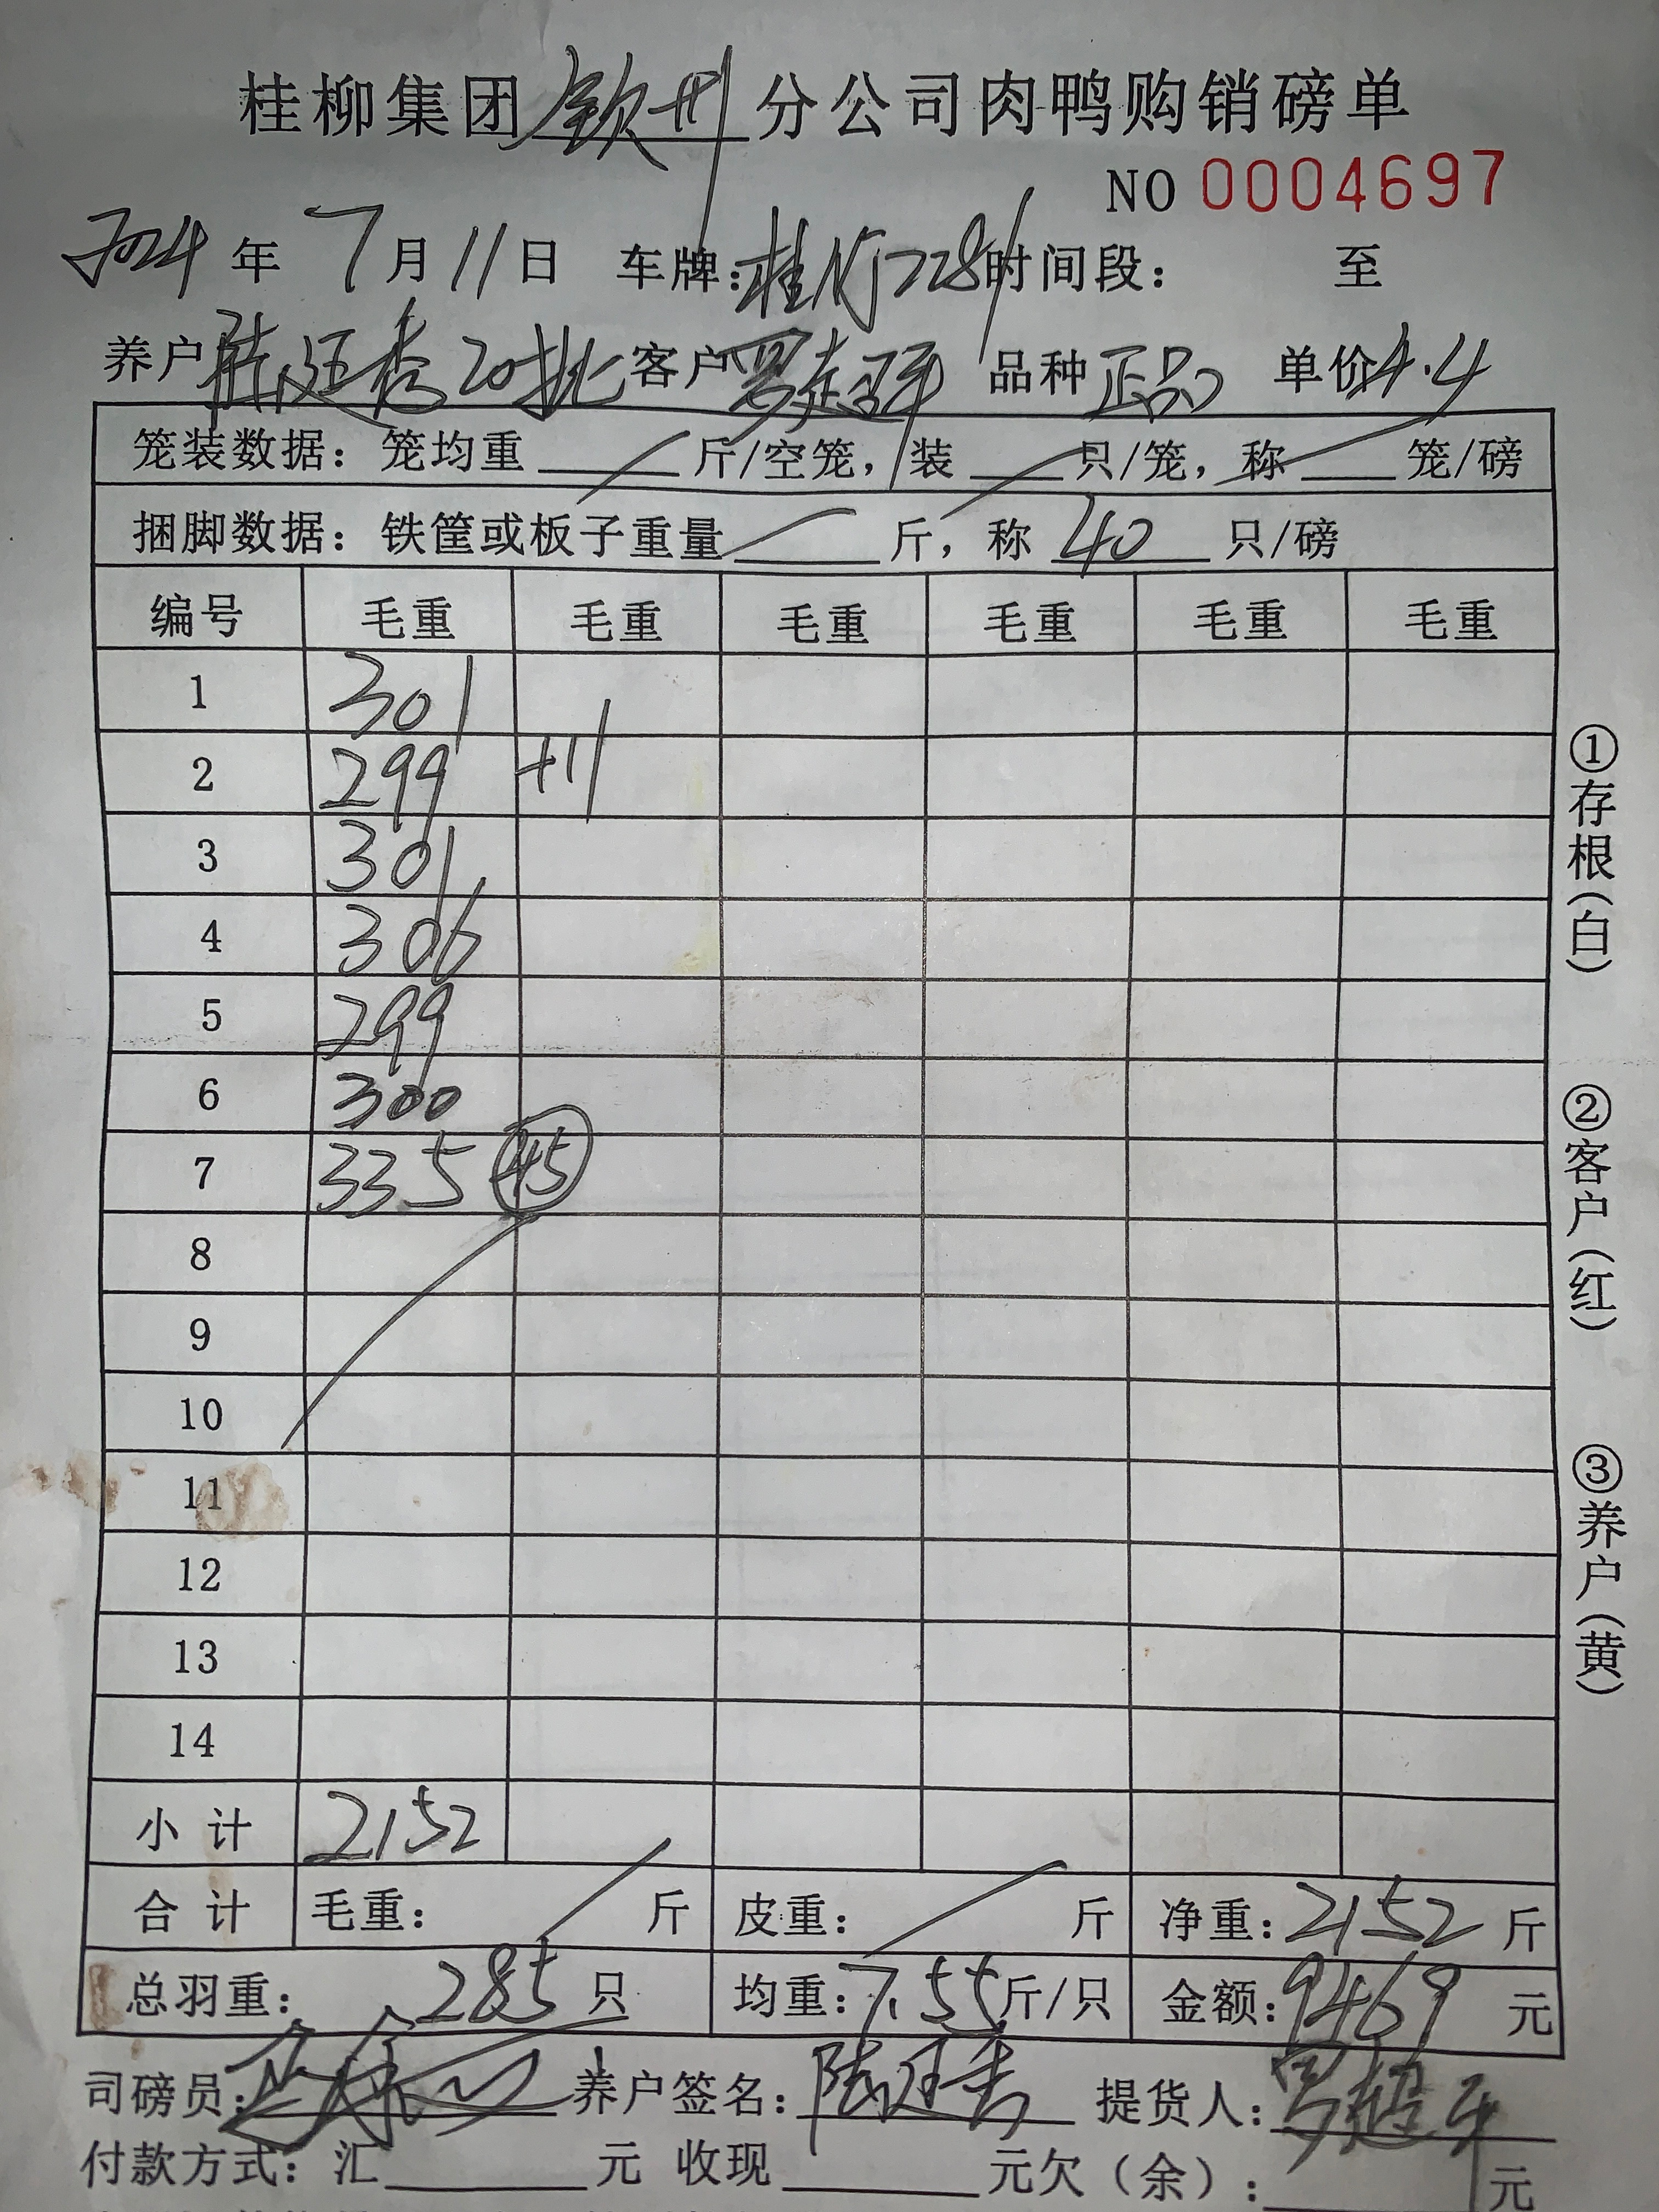 桂柳集团钦州分公司肉鸭购销磅单
NO 0004697
2024年7月11日 车牌:桂 时间段: 至
养户 20批 客户罗超平 品种正品 单价4.4
笼装数据: 笼均重 斤/空笼, 装 只/笼, 称 笼/磅
捆脚数据: 铁筐或板子重量 斤, 称 40 只/磅
编号 毛重 毛重 毛重 毛重 毛重 毛重
1 301
2 299 +11
3 301
4 306
5 299
6 300
7 335 45
8
9
10
11
12
13
14
小计 2152
合计 毛重: 斤 皮重: 斤 净重: 2152 斤
总羽重: 285 只 均重: 7.55 斤/只 金额: 9469 元
司磅员: 养户签名: 提货人: 罗超平
付款方式: 汇 元 收现 元欠(余): 元
①存根(白)
②客户(红)
③养户(黄)